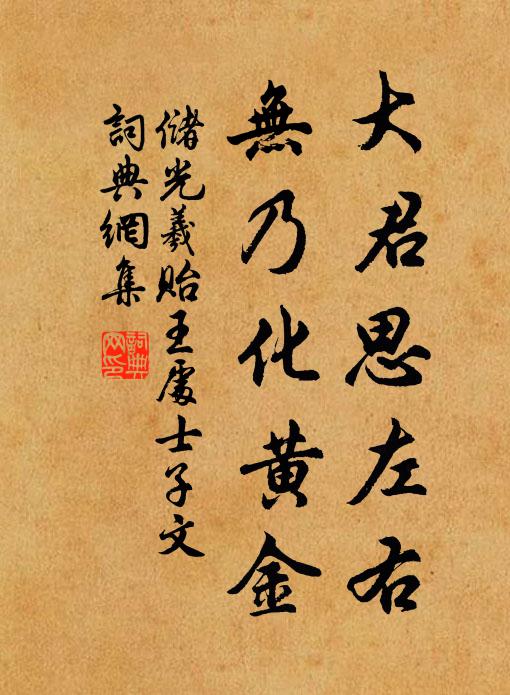 大君思左右
無乃化黃金
儲光羲貽王處士子文
詞典網集
詞典
网印